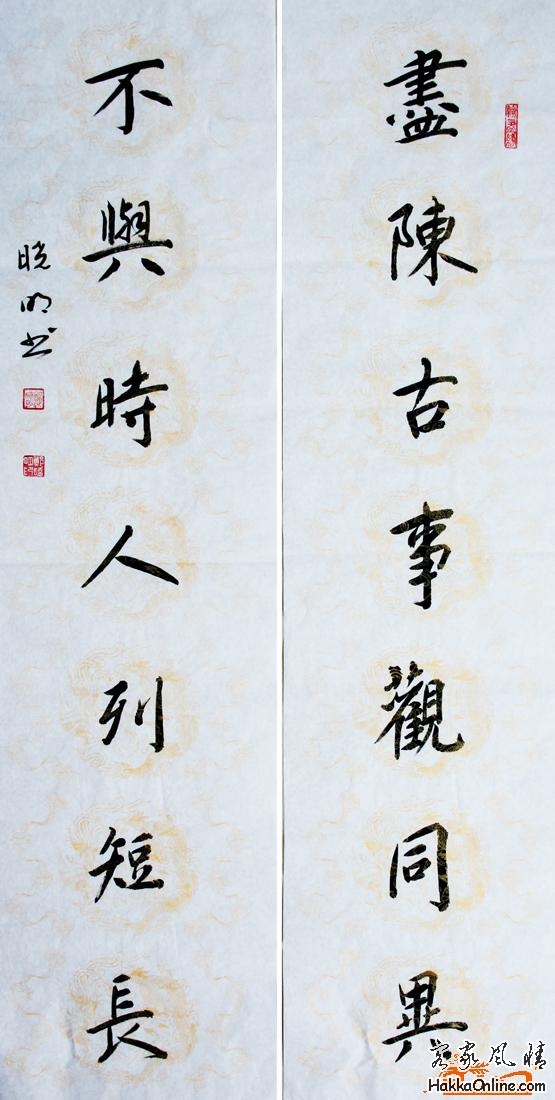 盡陳古事觀同異
不與時人列短長
晓明书
客家風情
HakkaOnline.com